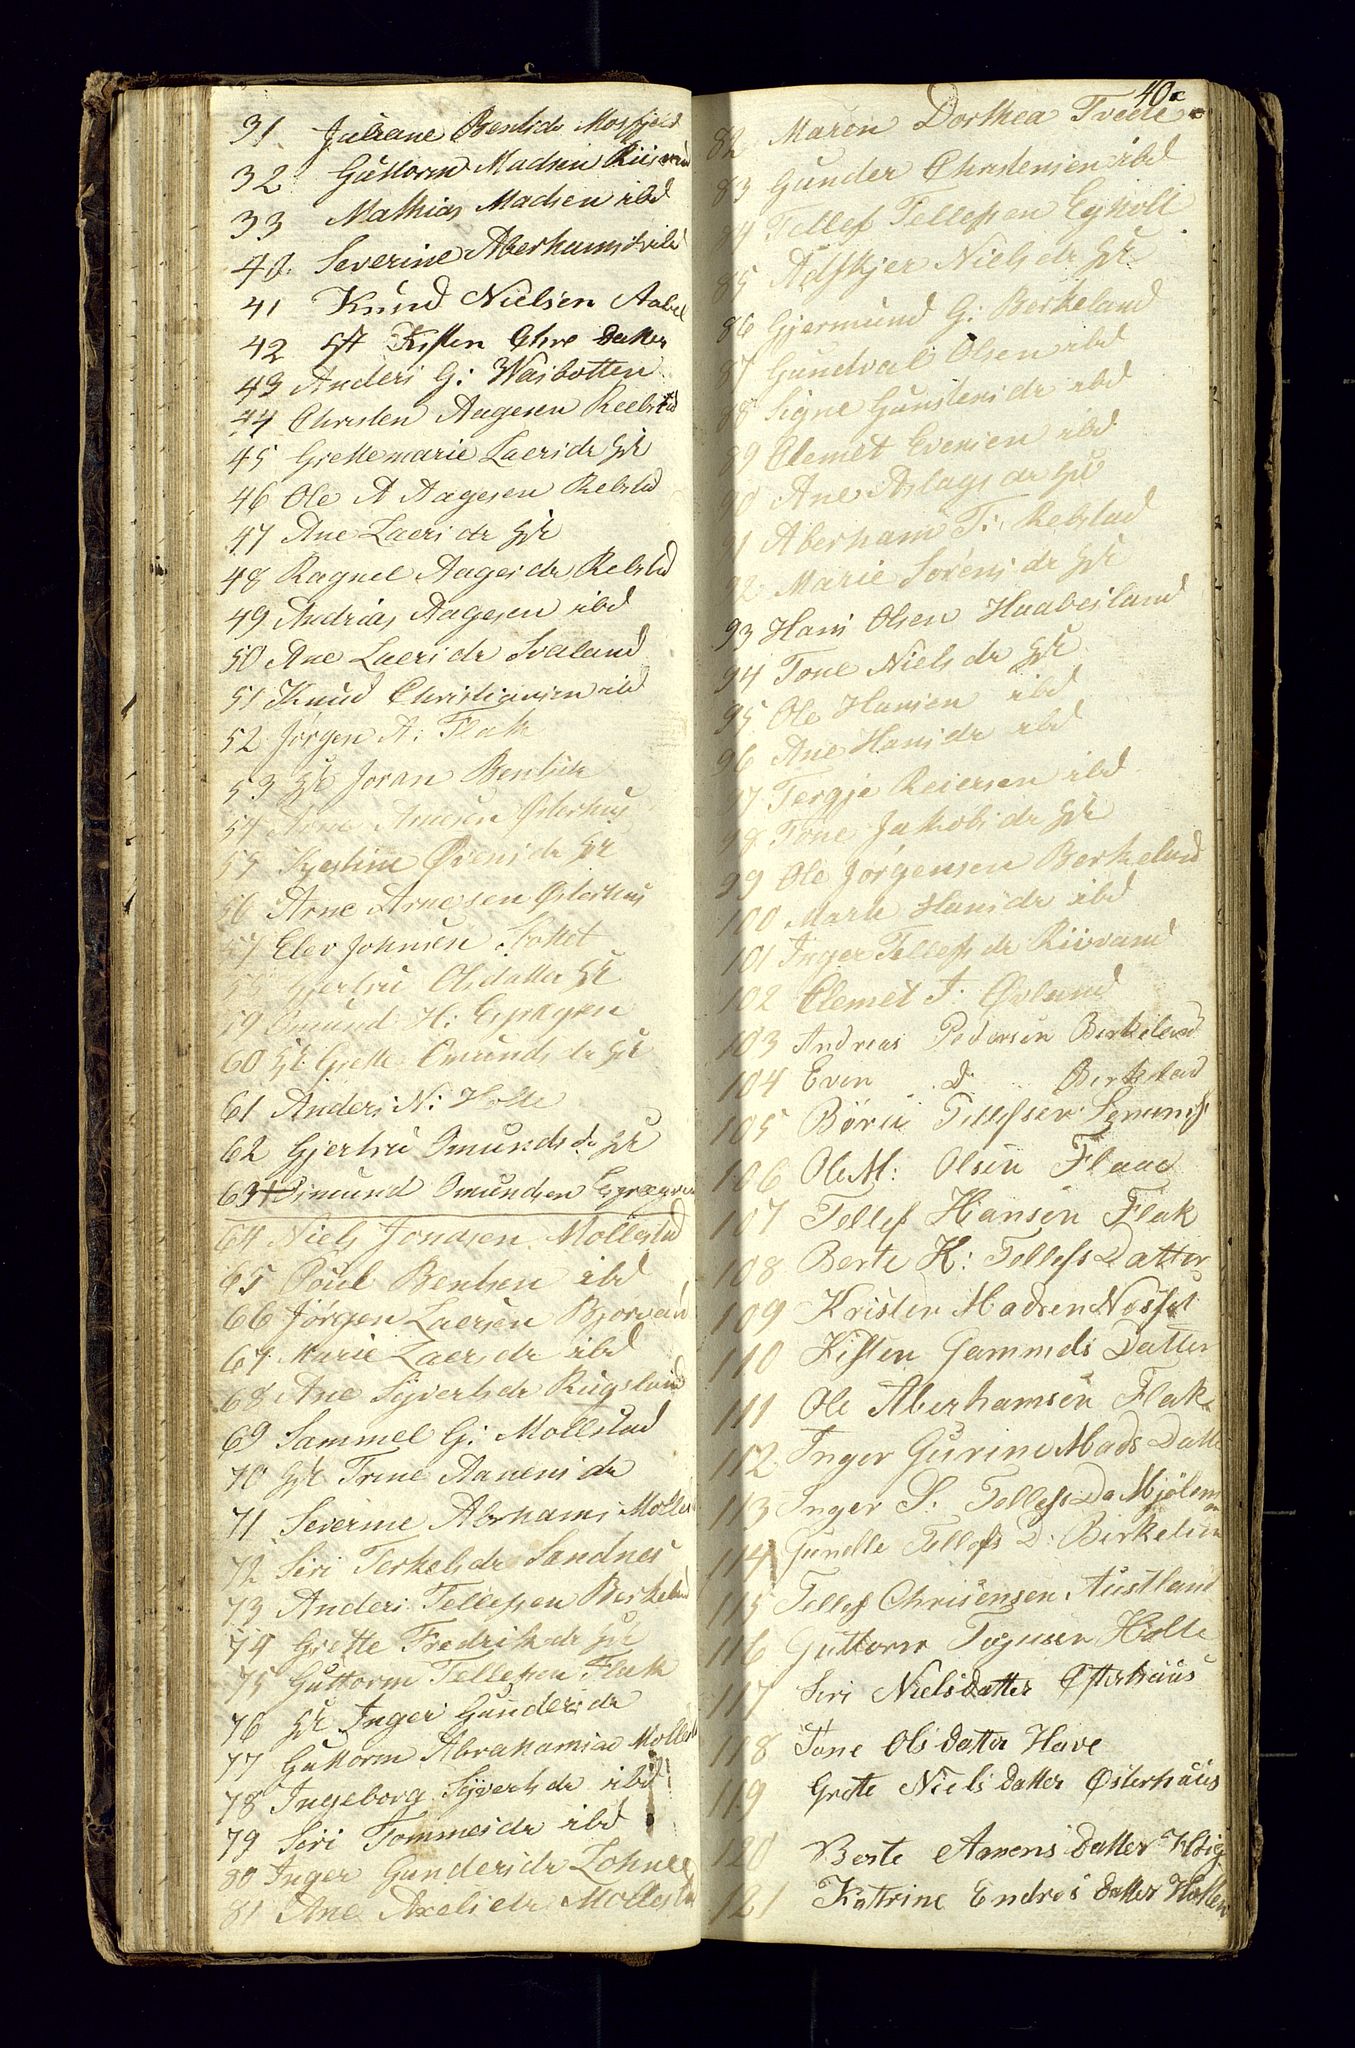 31 Juliane Bentsdr Mosfjeld
32 Guttorm Madsen Riisvand
33 Mathias Madsen ibd
40. Severine Aberhamsdr ibd
41 Knud Nielsen Aabel
42 Kisten Chre Datter
43 Anders G: Wasbotten
44 Christen Aagesen Reelstad
45 Grettemarie Laersdr
46 Ole A Aagesen Relstad
47 Ane Laersdr
48 Ragnel Aagesdr Relstad
49 Andrias Aagesen ibd
50 Ane Laersdr Svaland
51 Knud Christiansen ibd
52 Jørgen A: Flak
53 Joran Bentsdr
54 Arne Arnesen Østerhus
55 Kjestine Øvensdr
56 Arne Arnesen Østerhus
57 Elev Johnsen
58 Gjertru Olsdatter
59 Omund H:
60 Grette Omundsdr
61 Anders N: Holte
62 Gjertru Omundsdr
63 Omund Omundsen
64 Niels Jondsen Mollestad
65 Poul Bentsen ibd
66 Jørgen Laersen Bjorvand
67 Marie Laersdr ibd
68 Ane Syvertsdr Rugsland
69 Sammel G: Mollestad
70 Trine Aanensdr
71 Severine Abrhams
72 Siri Terkelsdr Sandnes
73 Anders Tellefsen Berkeland
74 Grette Fredriksdr
75 Guttorm Tellefsen Flak
76 Inger Gundersdr
77 Guttorm Abrahamsen
78 Ingeborg Syvertsdr ibd
79 Siri Tommesdr ibd
80 Inger Gundersdr
81 Ane Axelsdr Mollestad
40
82 Maren Dorthea Tveite
83 Gunder Christensen ibd
84 Tellef Tellefsen
85 Nielsdr
86 Gjermund G: Berkeland
87 Gundval Olsen ibd
88 Signe Gunstensdr ibd
89 Clemet Evensen ibd
90 Ane Aslagsdr
91 Aberham T: Relstad
92 Marie Sorensdr
93 Hans Olsen Haabesland
94 Tone Nielsdr
95 Ole Hansen ibd
96 Ane Hansdr ibd
97 Tergje Reiersen ibd
98 Tone Jakobsdr
99 Ole Jørgensen Berkeland
100 Marte Hansdr ibd
101 Inger Tellefsdr Riisvand
102 Clemet
103 Andreas Pedersen Berkeland
104 Even D Berkeland
105 Tellefsen
106 Ole M: Olsen Flaae
107 Tellef Hansen Flak
108 Berte K: Tellefs Datter
109 Kristen Madsen
110 Kisten Datter
111 Ole Aberhamsen Flak
112 Inger Gurine Mads Datter
113 Inger S. Tellefs Da
114 Gunelle Tellefs D: Birkelan
115 Tellef Chrisensen Austland
116 Guttorm Holte
117 Siri Niels Datter Østerhuus
118 Tone Ols Datter Have
119 Grette Niels Datter Østerhuus
120 Berte Aanens Datter
121 Katrine Endres Datter